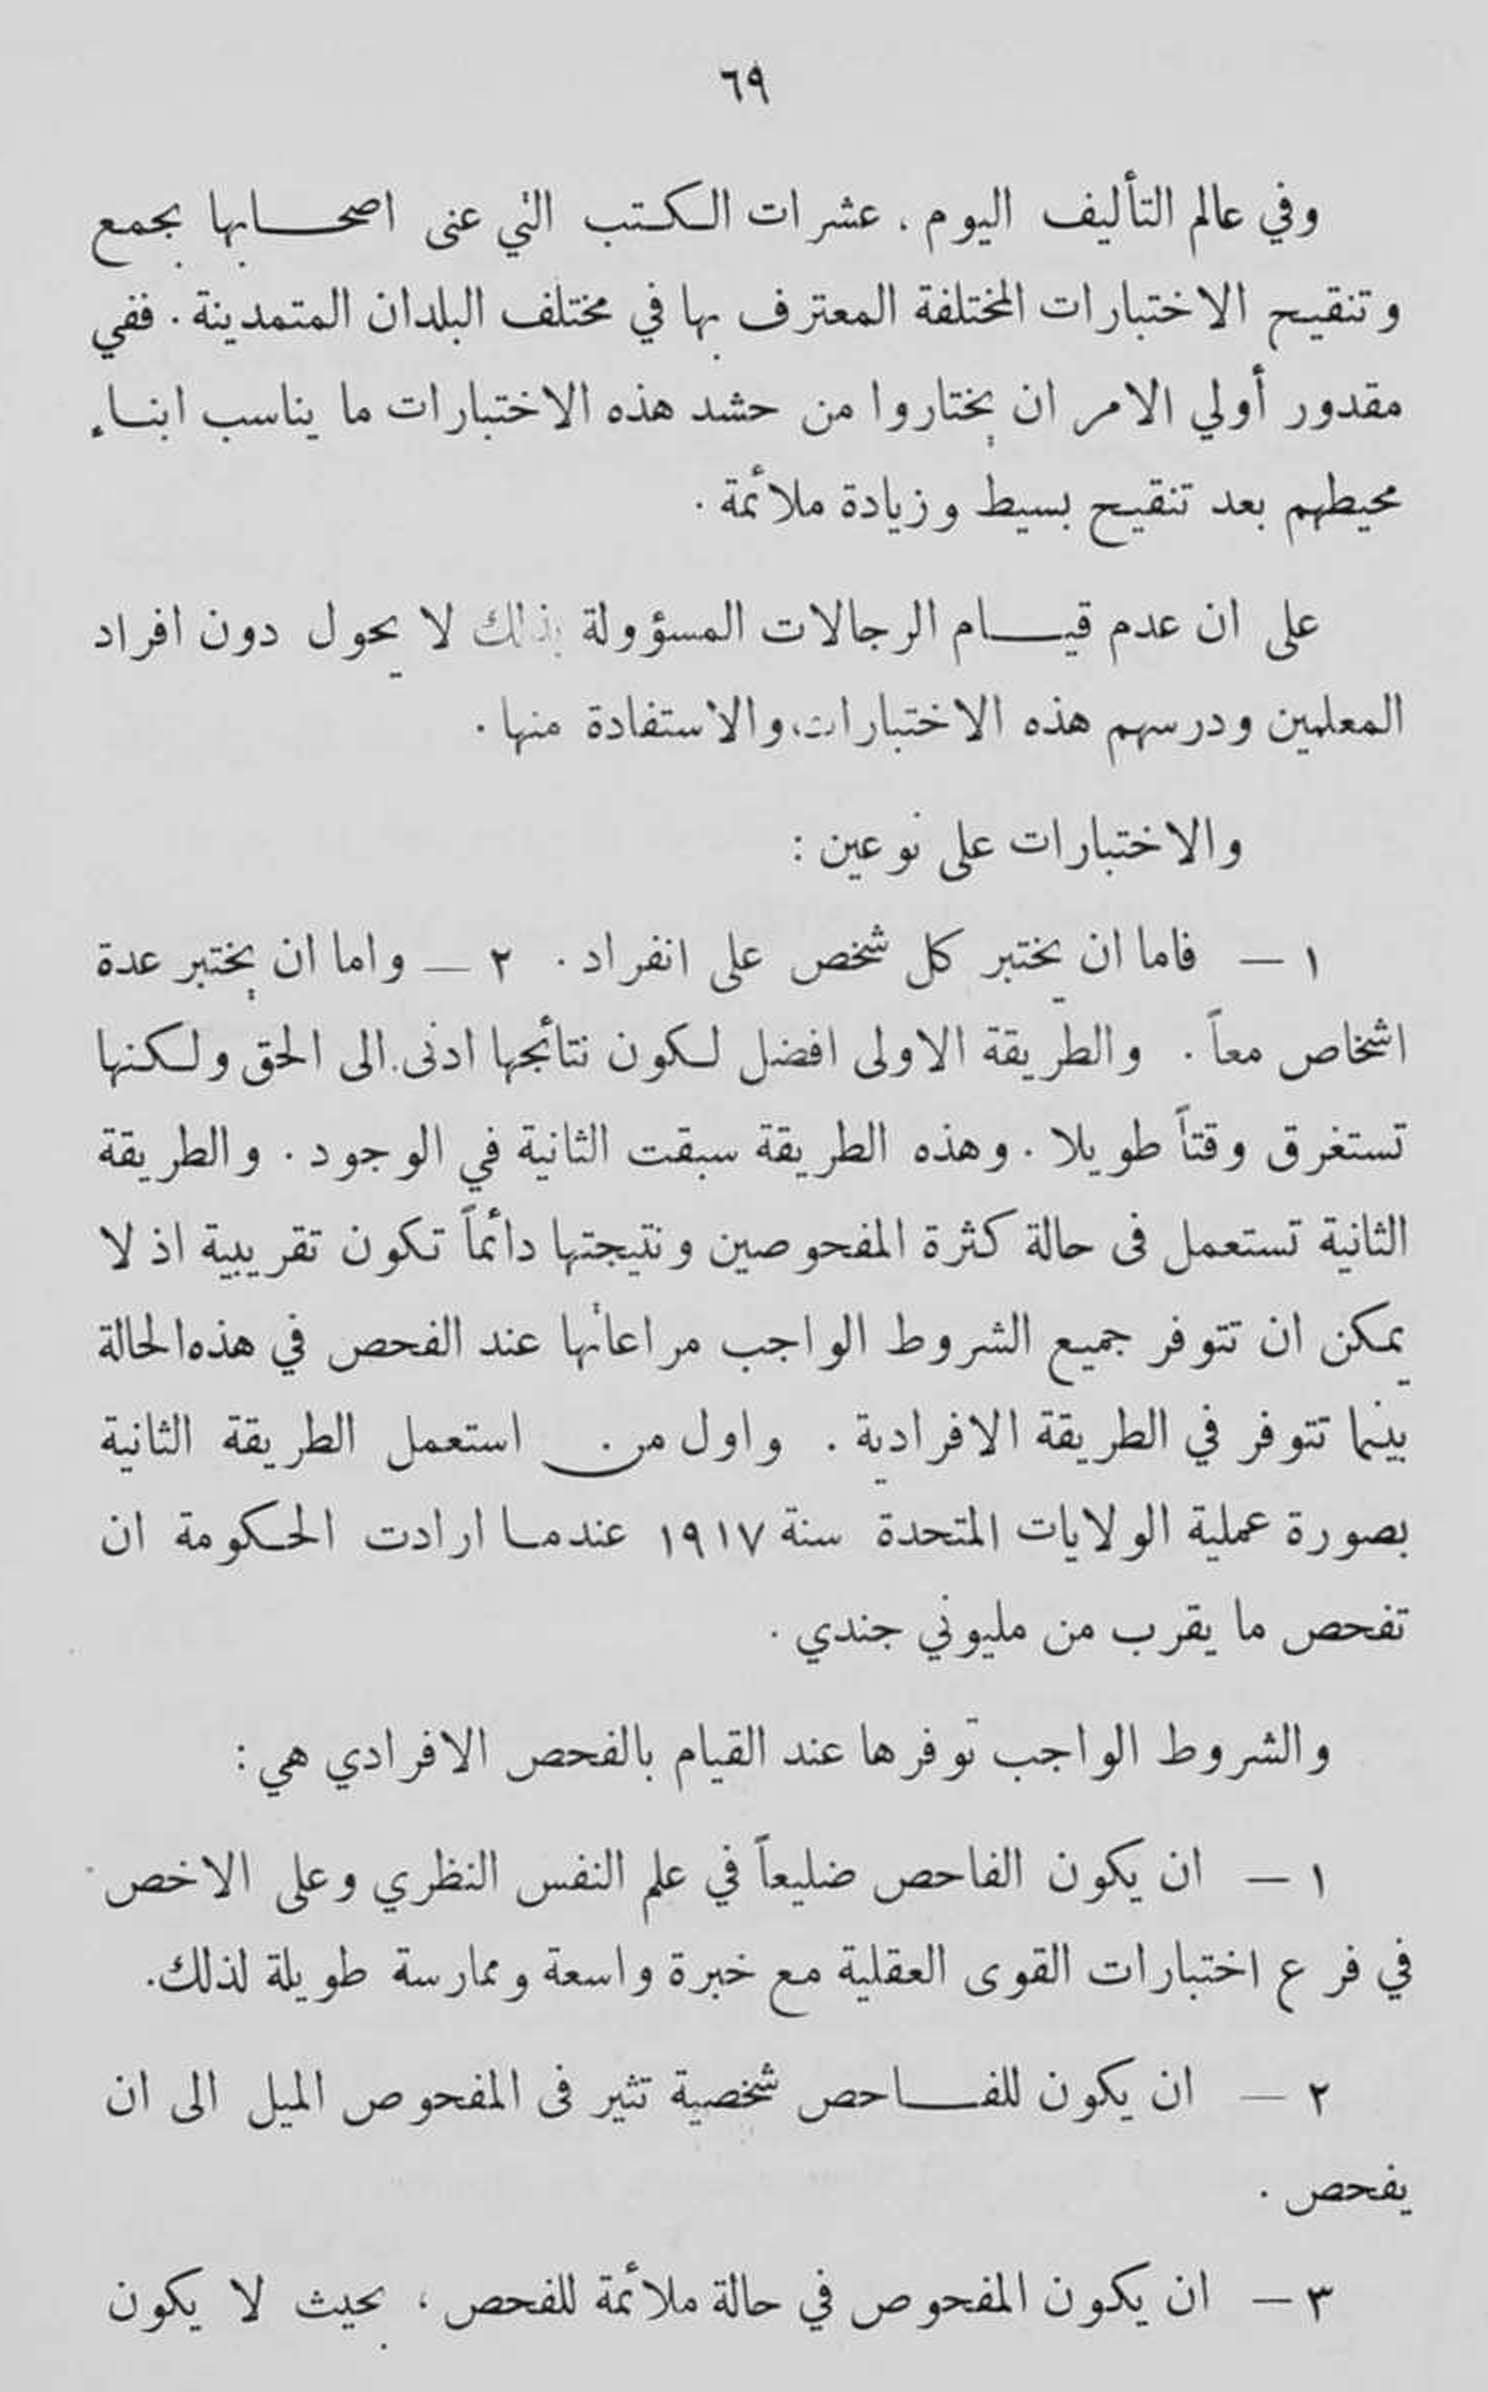 ٦٩
وفي عالم التأليف اليوم، عشرات الكتب التي عنى اصحابها بجمع
وتنقيح الاختبارات المختلفة المعترف بها في مختلف البلدان المتمدينة. ففي
مقدور أولي الامر ان يختاروا من حشد هذه الاختبارات ما يناسب ابناء
محيطهم بعد تنقيح بسيط وزيادة ملائمة.
على ان عدم قيام الرجالات المسؤولة بذلك لا يحول دون افراد
المعلمين ودرسهم هذه الاختبارات، والاستفادة منها.
والاختبارات على نوعين:
١ — فاما ان يختبر كل شخص على انفراد. ٢ — واما ان يختبر عدة
اشخاص معاً. والطريقة الاولى افضل لكون نتائجها ادنى الى الحق ولكنها
تستغرق وقتاً طويلا. وهذه الطريقة سبقت الثانية في الوجود. والطريقة
الثانية تستعمل فى حالة كثرة المفحوصين ونتيجتها دائماً تكون تقريبية اذ لا
يمكن ان تتوفر جميع الشروط الواجب مراعاتها عند الفحص في هذه الحالة
بينما تتوفر في الطريقة الافرادية. واول من استعمل الطريقة الثانية
بصورة عملية الولايات المتحدة سنة ١٩١٧ عندما ارادت الحكومة ان
تفحص ما يقرب من مليوني جندي.
والشروط الواجب توفرها عند القيام بالفحص الافرادي هي:
١ — ان يكون الفاحص ضليعاً في علم النفس النظري وعلى الاخص
في فرع اختبارات القوى العقلية مع خبرة واسعة وممارسة طويلة لذلك.
٢ — ان يكون للفاحص شخصية تثير فى المفحوص الميل الى ان
يفحص.
٣ — ان يكون المفحوص في حالة ملائمة للفحص، بحيث لا يكون